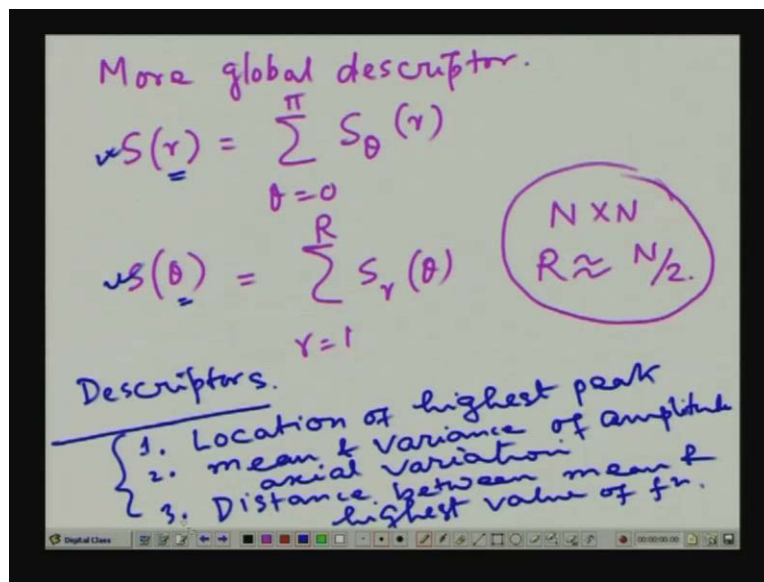 More global descriptor.
S(r) = ∑_{θ=0}^{π} S_θ(r)
S(θ) = ∑_{r=1}^{R} S_r(θ)
N X N
R ≈ N/2.
Descriptors.
1. Location of highest peak
2. mean & variance of amplitude
axial variation
3. Distance between mean &
highest value of fn.
Digital Class
00:00:00.00